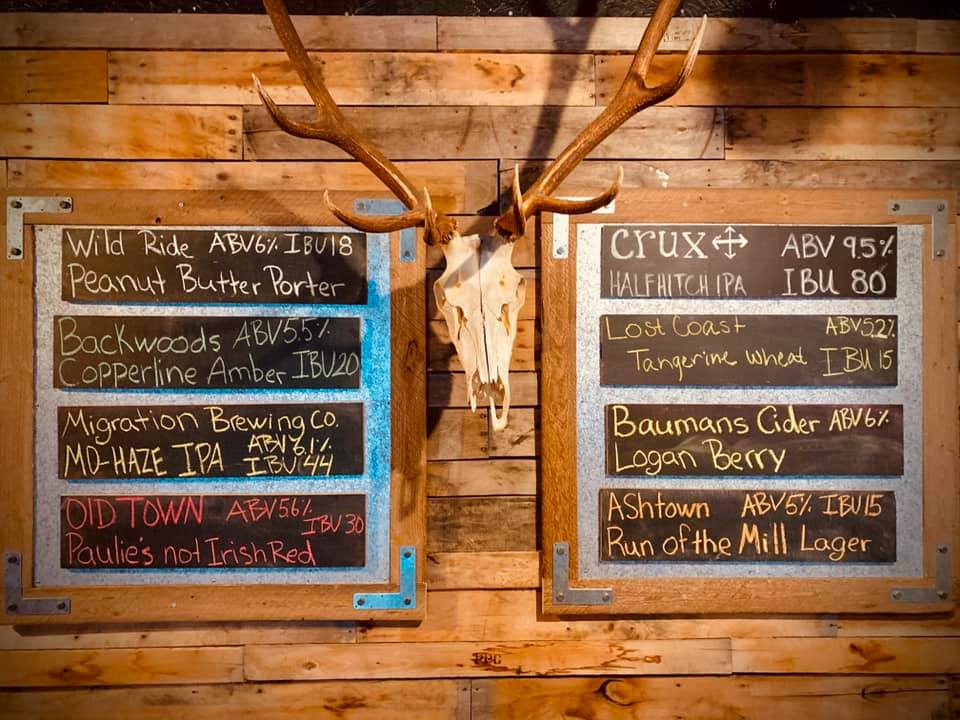 Wild Ride ABV6% IBU18
Peanut Butter Porter
Backwoods ABV5.5%
Copperline Amber IBU20
Migration Brewing Co.
MO-HAZE IPA ABV 6.1%
IBU 44
OLD TOWN ABV5.6%
IBU 30
Paulie's not Irish Red
CRUX ABV 9.5%
HALFHITCH IPA IBU 80
Lost Coast ABV5.2%
Tangerine Wheat IBU 15
Baumans Cider ABV6%
Logan Berry
Ashtown ABV5% IBU15
Run of the Mill Lager